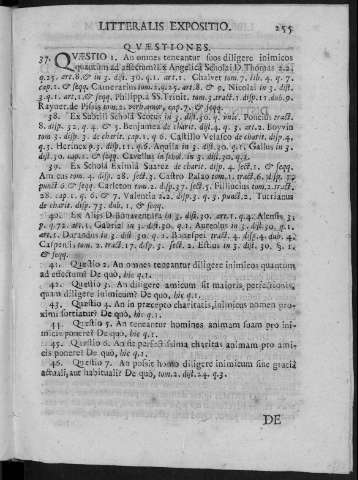 LITTERALIS EXPOSITIO. 255
QVÆSTIONES.
37. QVÆSTIO 1. An omnes teneantur suos diligere inimicos
quantùm ad affectum? Ex Angelica Schola: D. Thomas 2.2.
q.25. art.8. & in 3. dist. 30. q.1. art.1. Chalvet tom.7. lib. 4. q. 7.
cap.1. & seqq. Camerarius tom.2. q.25. art.8. & 9. Nicolai in 3. dist.
3. q.1. art.1. & seqq. Philipp. à SS. Trinit. tom.3. tract.1. disp.11. dub.9.
Rayner. de Pisis tom.2. verb. amor, cap.7. & seqq.
38. Ex Subtili Schola Scotus in 3. dist.30. q. unic. Poncius tract.
8. disp. 32. q. 4. & 5. Benjumea de charit. disp.4. q. 3. art. 2. Boyvin
tom. 3. disp. 3. de charit. cap.1. q 6. Castillo Velasco de charit. disp.4.
q.3. Herincx p.3. disp.11. q.6. Aquila in 3. dist.30. q.1. Gallus in 3.
dist.30. cap.1. & seqq. Cavellus in suppl. in 3. dist.30. q.1.
39. Ex Schola Eximia Suarez de charit. disp. 4. sect.1. & seqq.
Amicus tom. 4. disp. 28. sect.3. Castro Palao tom.1. tract.6. disp.1.
punct.6 & seqq. Carleton tom.2. disp.37. sect.5. Filliucius tom.2. tract.
28. cap.1. q. 6 & 7. Valentia 2.2. disp.3. q. 3. punct.2. Turrianus
de charit. disp. 73. dub. 1. & seqq.
40. Ex Alijs D. Bonaventura in 3. dist.30. art.1. q.4. Alensis 3.
p. q.72. art.1. Gabriel in 3. dist.30. q.1. Aureolus in 3. dist.30. q.1.
art.1. Durandus in 3. dist.30. q.1. Bonæspei tract.4. disp.4. dub. 4.
Caspensis tom. 2. tract.17. disp. 3. sect. 2. Estius in 3. dist. 30. §. 1.
& seqq.
41. Quæstio 2. An omnes teneantur diligere inimicos quantum
ad effectum? De quò, hic q.1.
42. Quæstio 3. An diligere amicum sit maioris perfectionis,
quàm diligere inimicum? De quo, hic q.1.
43. Quæstio 4. An in præcepto charitatis, inimicus nomen pro-
ximi sortiatur? De quò, hic q.1.
44. Quæstio 5. An teneantur homines animam suam pro ini-
micis ponere? De quò, hic q.1.
45. Quæstio 6. An sit perfectissima charitas animam pro ami-
cis ponere? De quò, hic q.1.
46. Quæstio 7. An possit homo diligere inimicum sine gratiâ
actuali, aut habituali? De quò, tom.2. dist.24. q.3.
DE